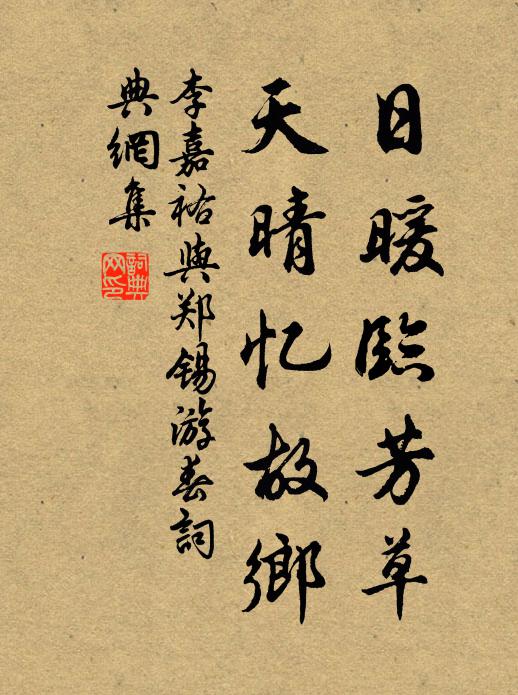 日暖臨芳草
天晴忆故鄉
李嘉祐與郑锡游春詞
典網集
詞典
网印